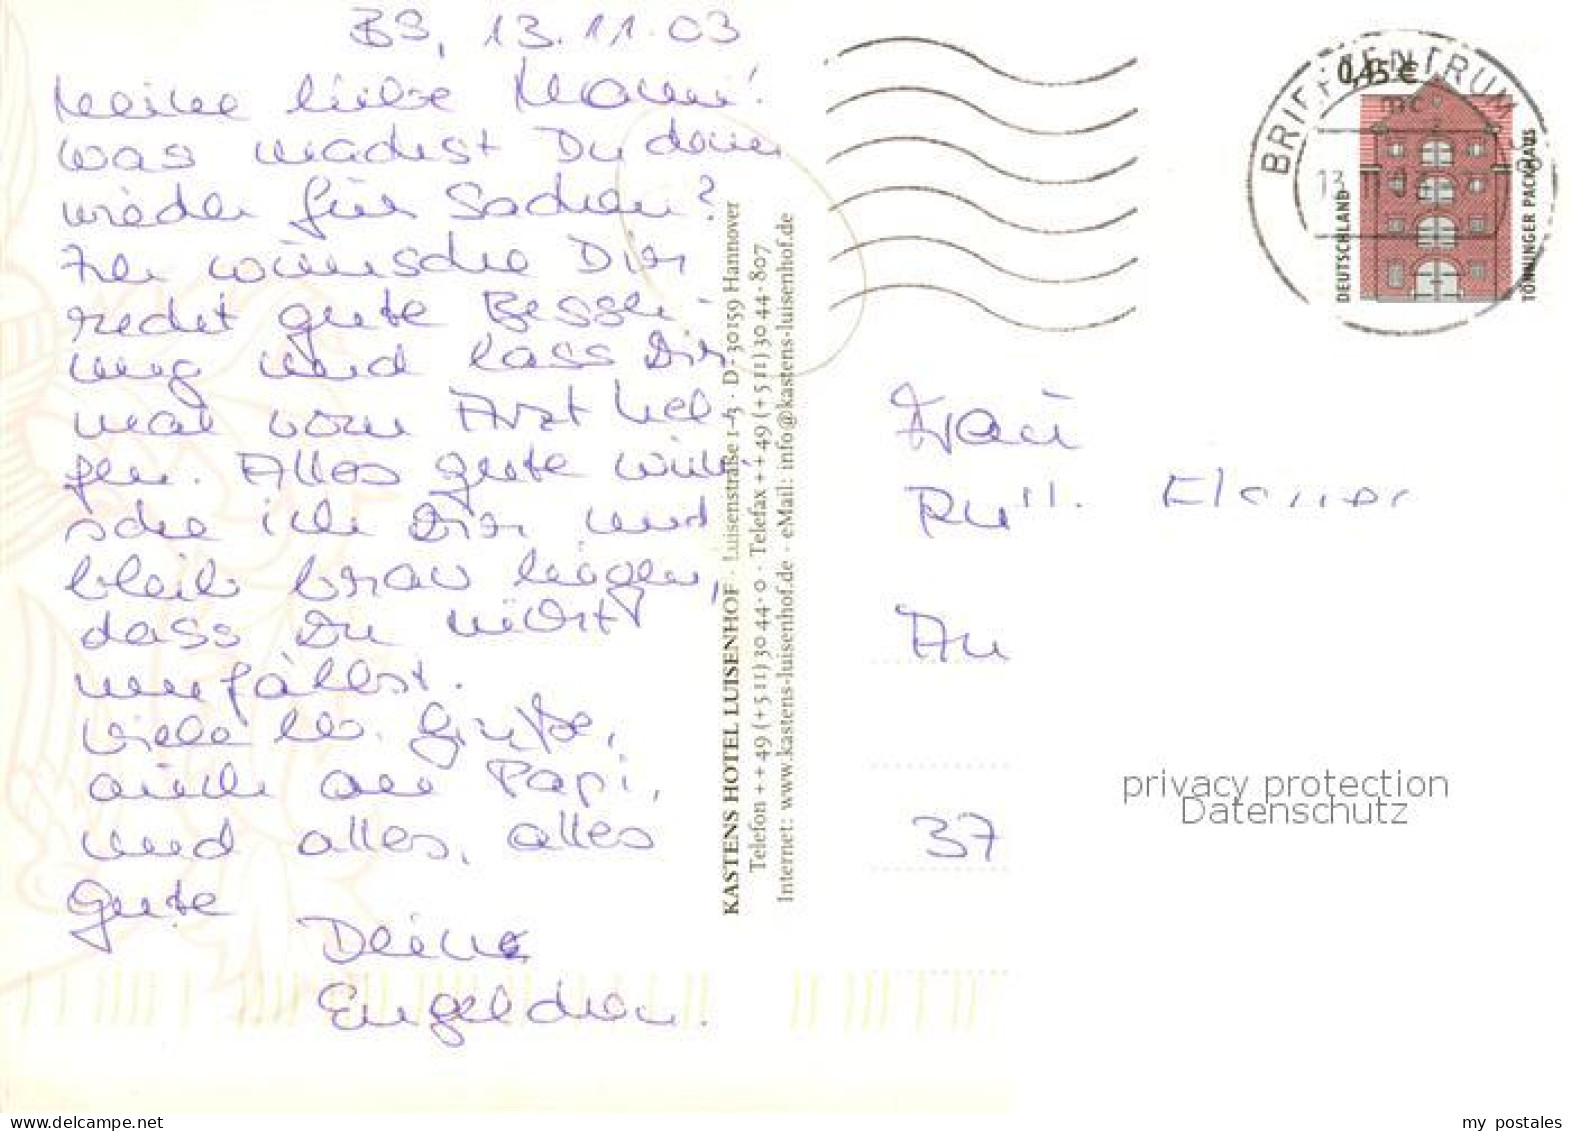 BS, 13.11.03
Meine liebe Mami!
was machst Du denn
wieder für Sachen?
wünsche Dir
recht gute Besse-
ung und lass Dir
mal vom Arzt hel
fen. Alles gute wün
sche ich Dir und
bleib brav liegen,
dass Du nicht
umfällst.
Viele lb. Grüße,
auch an Papi,
und alles, alles
gute
Deine
Engelchen.
KASTENS HOTEL LUISENHOF · Luisenstraße 1-3 · D-30159 Hannover
Telefon ++49 (+511) 30 44-0 · Telefax ++49 (+511) 30 44-807
Internet: www.kastens-luisenhof.de · eMail: info@kastens-luisenhof.de
BRIEFZENTRUM
13
0,45 €
DEUTSCHLAND
TÖNNINGER PACKHAUS
Frau
An
37
privacy protection
Datenschutz
delcampe.net
my_postales